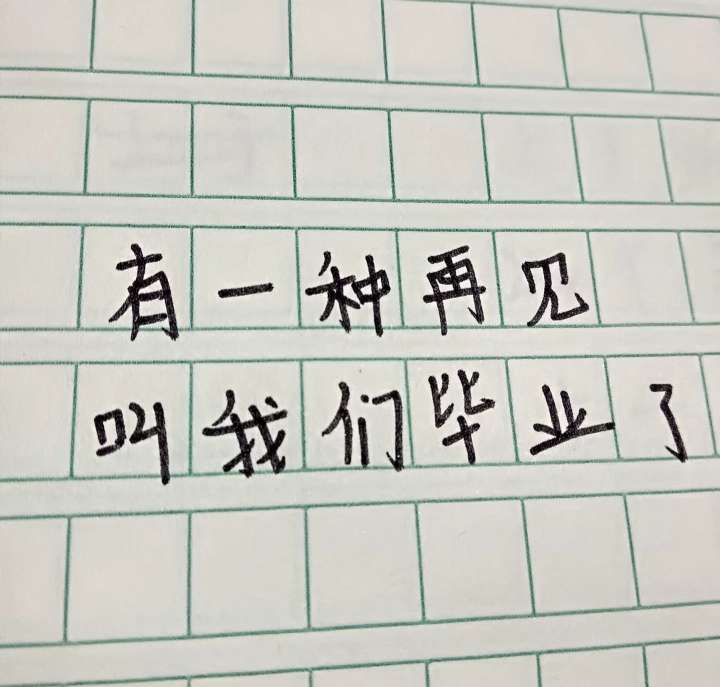 有一种再见
叫我们毕业了